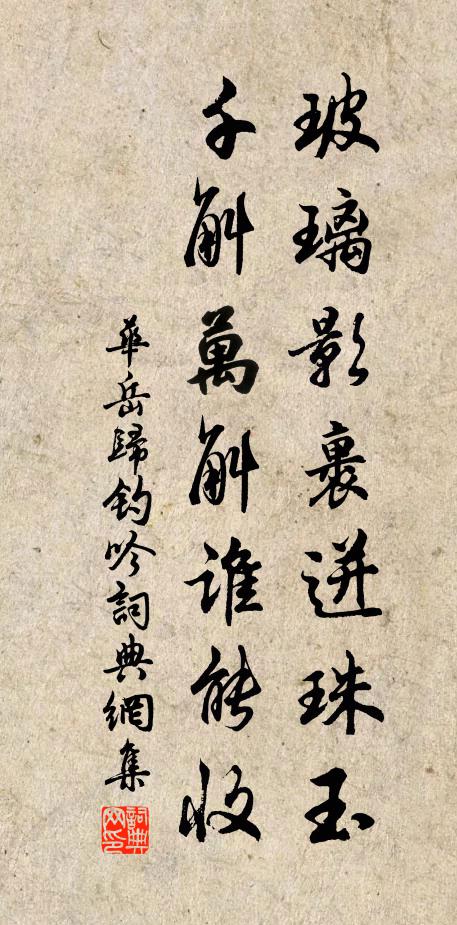 玻璃影裏迸珠玉
千斛萬斛誰能收
華岳歸釣吟詞典網集
詞典网印